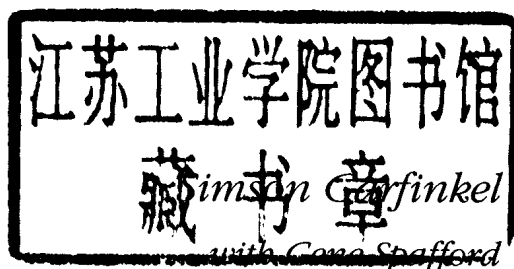 江苏工业学院图书馆
藏书章
Simson Garfinkel
with Gene Spafford